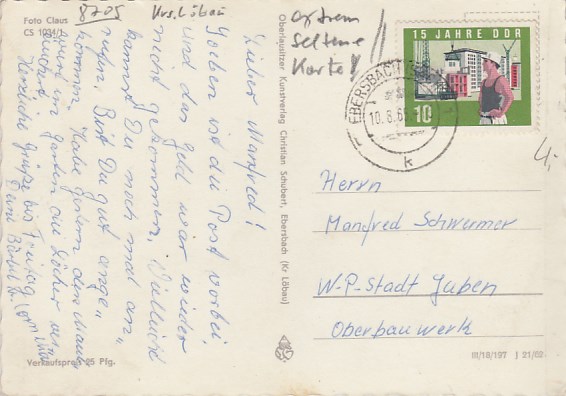 Foto Claus
CS 1034/1
8705
Krs. Löbau
extrem
seltene
Karte!
Lieber Manfred!
Soeben ist die Post vorbei
und das Geld war wieder
nicht gekommen. Vielleicht
kannst Du noch mal an-
rufen. Bist Du gut ange-
kommen. Habe gestern den
im Garten die Löcher
Herzliche Grüße bis Freitag
Deine Bärbel
Verkaufspreis 25 Pfg.
Oberlausitzer Kunstverlag Christian Schubert, Ebersbach (Kr Löbau)
15 JAHRE DDR
10
EBERSBACH
10.8.65
k
4,-
Herrn
Manfred Schwermer
W.-P.-Stadt Guben
Oberbauwerk
III/18/197 J 21/62